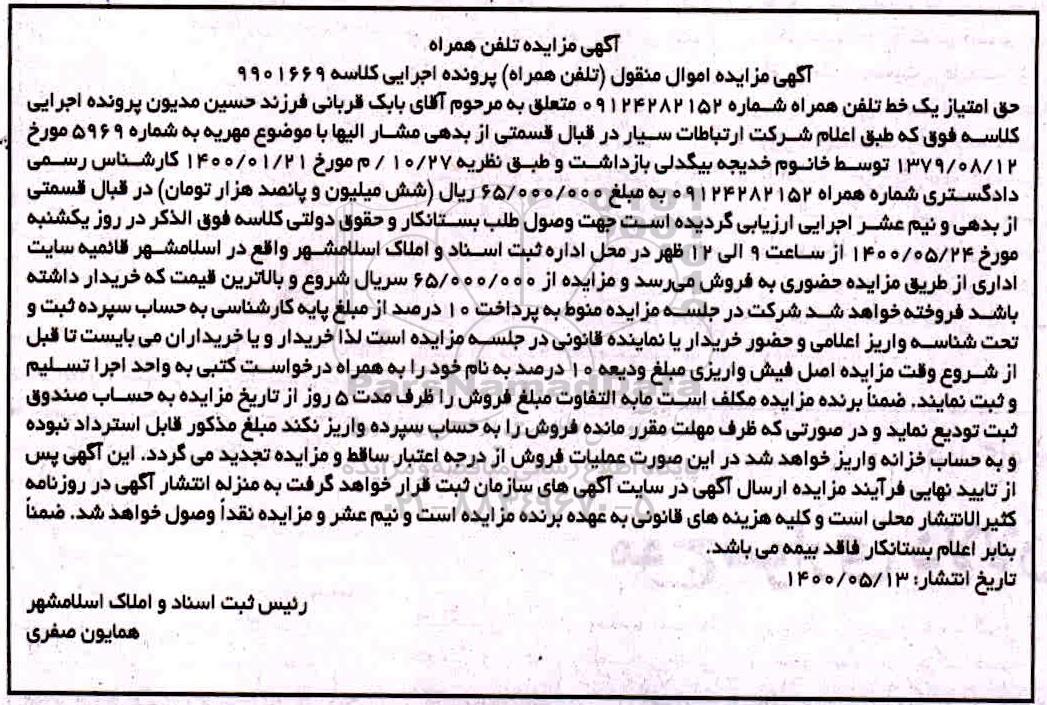 آگهی مزایده تلفن همراه
آگهی مزایده اموال منقول (تلفن همراه) پرونده اجرایی کلاسه ۹۹۰۱۶۶۹
حق امتیاز یک خط تلفن همراه شماره ۰۹۱۲۴۲۸۲۱۵۲ متعلق به مرحوم آقای بابک قربانی فرزند حسین مدیون پرونده اجرایی
کلاسه فوق که طبق اعلام شرکت ارتباطات سیار در قبال قسمتی از بدهی مشار الیها با موضوع مهریه به شماره ۵۹۶۹ مورخ
۱۳۷۹/۰۸/۱۲ توسط خانوم خدیجه بیگدلی بازداشت و طبق نظریه ۱۰/۲۷ / م مورخ ۱۴۰۰/۰۱/۲۱ کارشناس رسمی
دادگستری شماره همراه ۰۹۱۲۴۲۸۲۱۵۲ به مبلغ ۶۵/۰۰۰/۰۰۰ ریال (شش میلیون و پانصد هزار تومان) در قبال قسمتی
از بدهی و نیم عشر اجرایی ارزیابی گردیده است جهت وصول طلب بستانکار و حقوق دولتی کلاسه فوق الذکر در روز یکشنبه
مورخ ۱۴۰۰/۰۵/۲۴ از ساعت ۹ الی ۱۲ ظهر در محل اداره ثبت اسناد و املاک اسلامشهر واقع در اسلامشهر قائمیه سایت
اداری از طریق مزایده حضوری به فروش می‌رسد و مزایده از ۶۵/۰۰۰/۰۰۰ سریال شروع و بالاترین قیمت که خریدار داشته
باشد فروخته خواهد شد شرکت در جلسه مزایده منوط به پرداخت ۱۰ درصد از مبلغ پایه کارشناسی به حساب سپرده ثبت و
تحت شناسه واریز اعلامی و حضور خریدار یا نماینده قانونی در جلسه مزایده است لذا خریدار و یا خریداران می بایست تا قبل
از شروع وقت مزایده اصل فیش واریزی مبلغ ودیعه ۱۰ درصد به نام خود را به همراه درخواست کتبی به واحد اجرا تسلیم
و ثبت نمایند. ضمناً برنده مزایده مکلف است مابه التفاوت مبلغ فروش را ظرف مدت ۵ روز از تاریخ مزایده به حساب صندوق
ثبت تودیع نماید و در صورتی که ظرف مهلت مقرر مانده فروش را به حساب سپرده واریز نکند مبلغ مذکور قابل استرداد نبوده
و به حساب خزانه واریز خواهد شد در این صورت عملیات فروش از درجه اعتبار ساقط و مزایده تجدید می گردد. این آگهی پس
از تایید نهایی فرآیند مزایده ارسال آگهی در سایت آگهی های سازمان ثبت قرار خواهد گرفت به منزله انتشار آگهی در روزنامه
کثیرالانتشار محلی است و کلیه هزینه های قانونی به عهده برنده مزایده است و نیم عشر و مزایده نقداً وصول خواهد شد. ضمناً
بنابر اعلام بستانکار فاقد بیمه می باشد.
تاریخ انتشار: ۱۴۰۰/۰۵/۱۳
رئیس ثبت اسناد و املاک اسلامشهر
همایون صفری
ParsNamadData